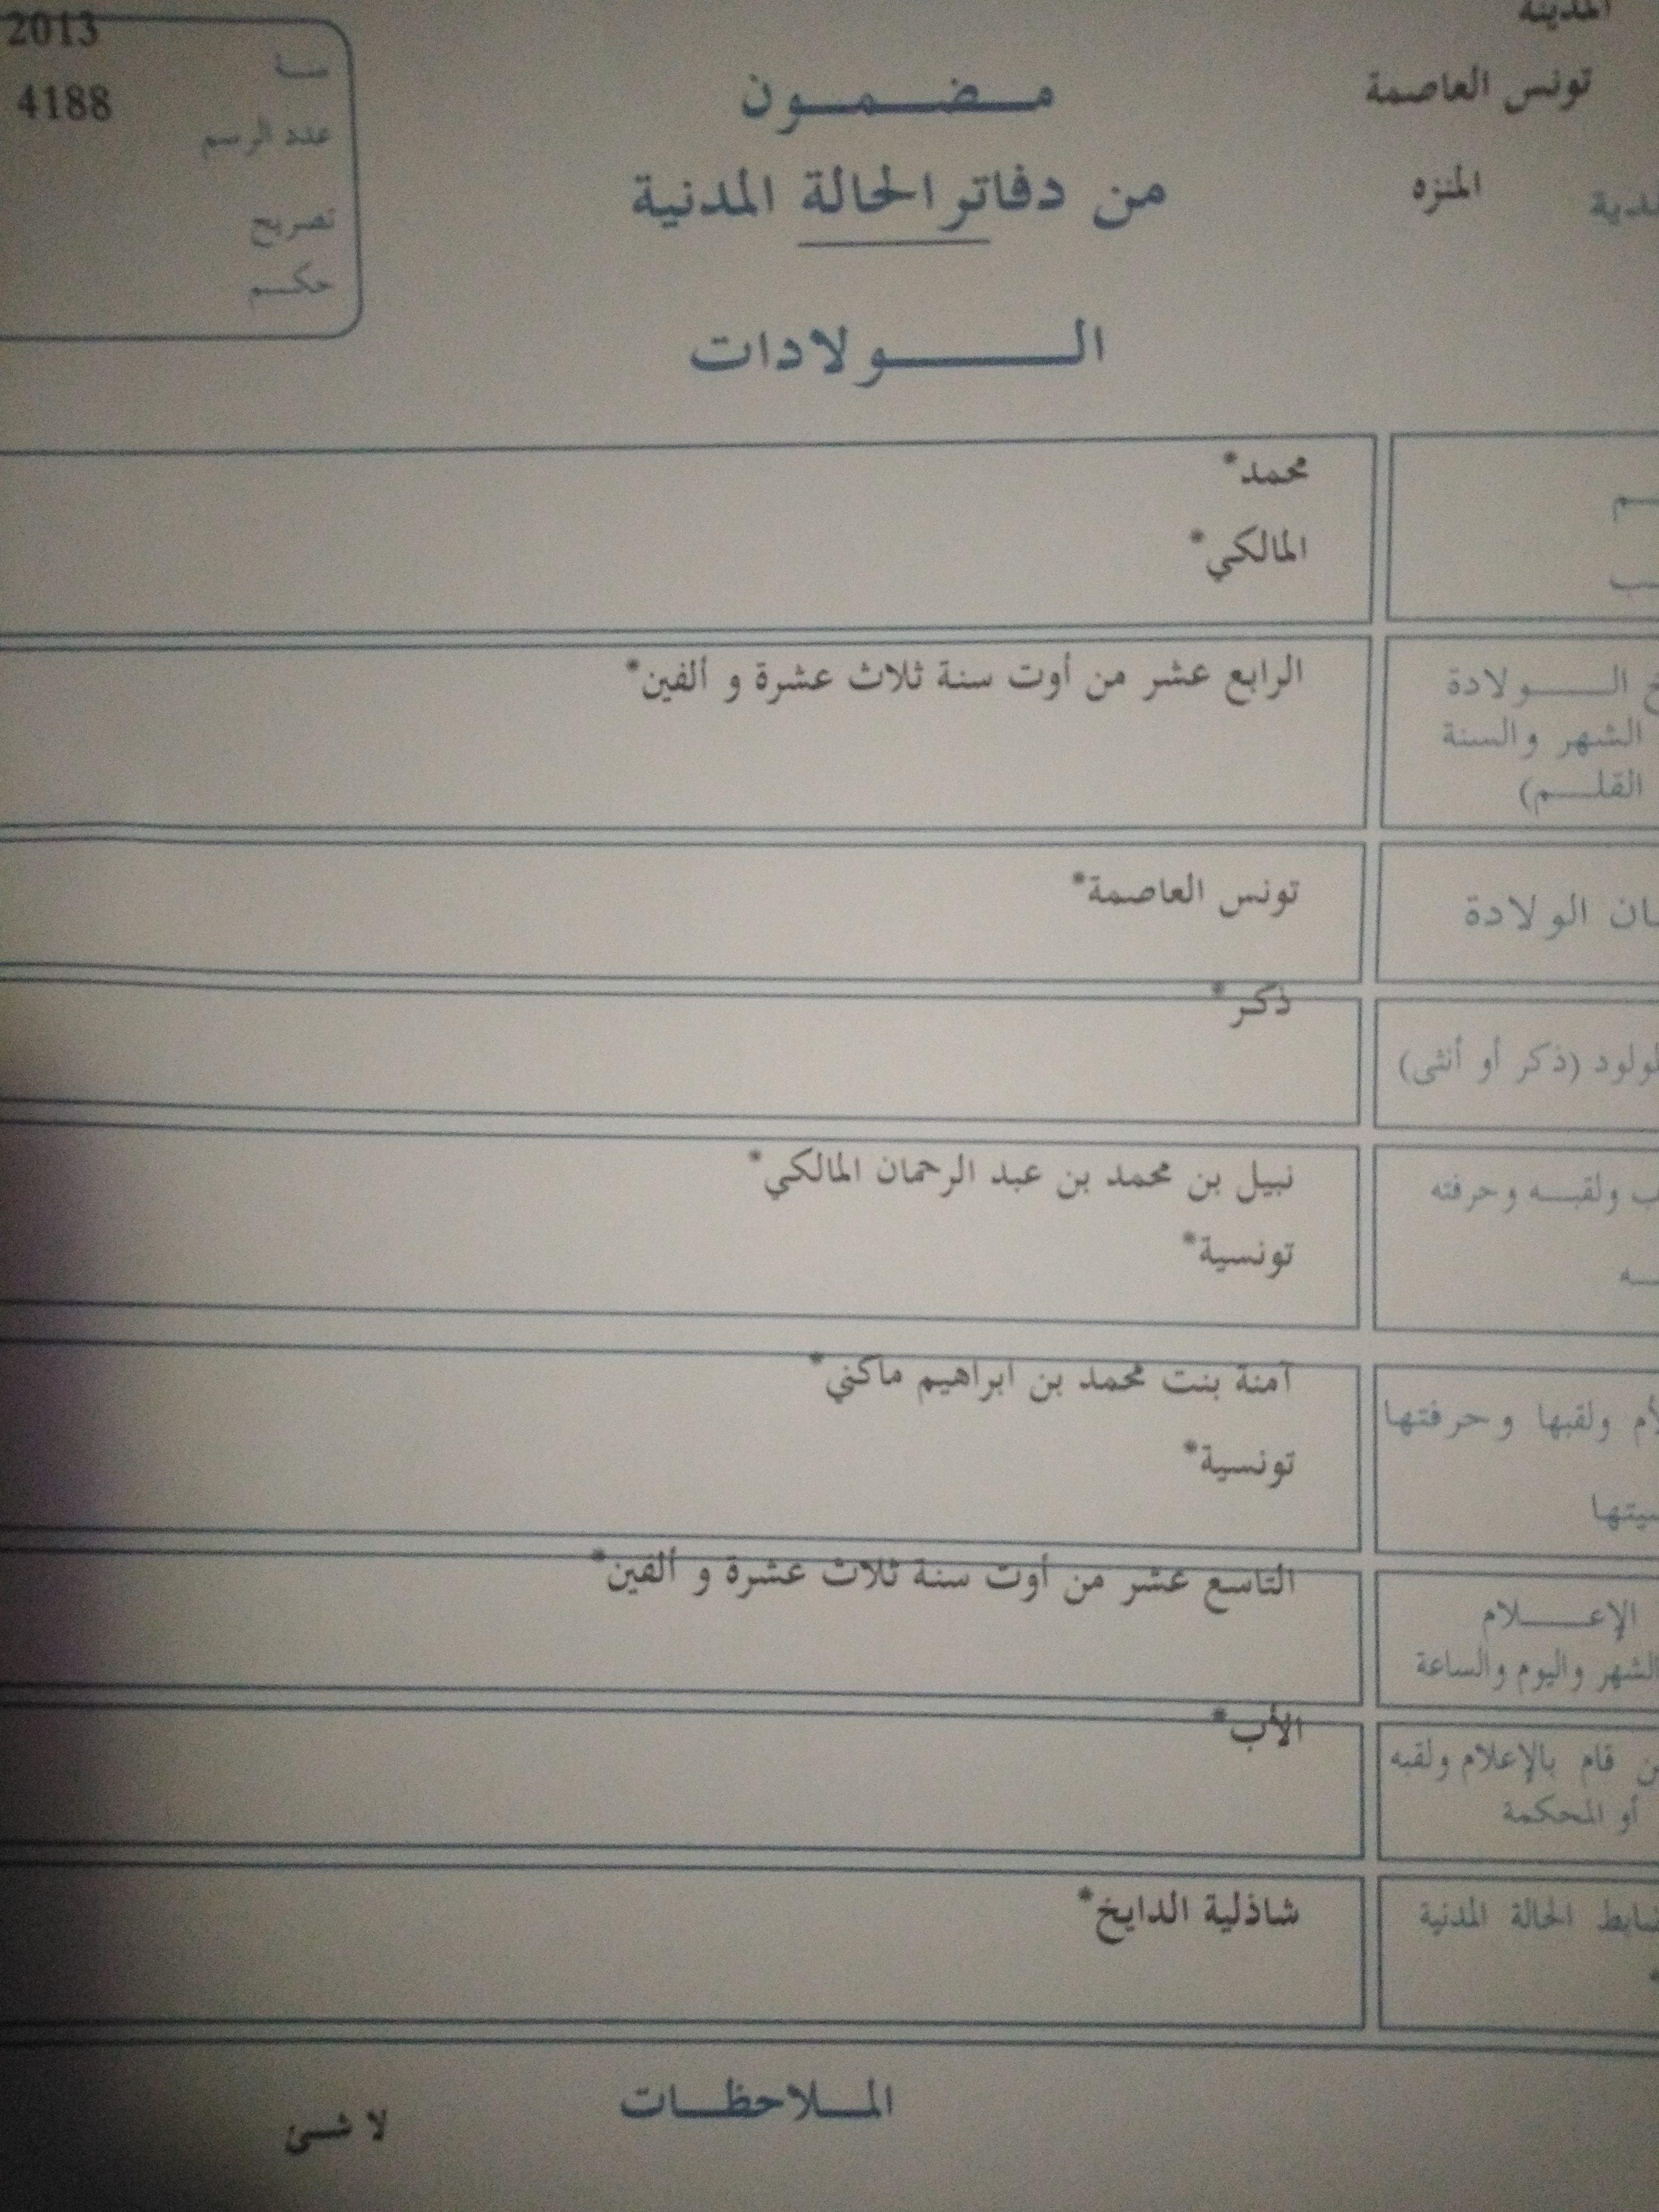 2013
سنة
4188
عدد الرسم
تصريح
حكم
المدينة
تونس العاصمة
المنزه
مضمون
من دفاتر الحالة المدنية
الولادات
محمد*
المالكي*
الولادة
الشهر والسنة
القلم)
الرابع عشر من أوت سنة ثلاث عشرة و ألفين*
الولادة
تونس العاصمة*
(ذكر أو أنثى)
ذكر*
ولقبه وحرفته
نبيل بن محمد بن عبد الرحمان المالكي*
تونسية*
ولقبها وحرفتها
آمنة بنت محمد بن ابراهيم ماكني*
تونسية*
الإعلام
الشهر واليوم والساعة
التاسع عشر من أوت سنة ثلاث عشرة و ألفين*
قام بالإعلام ولقبه
أو المحكمة
الأب*
الحالة المدنية
شاذلية الدايخ*
الملاحظات
لا شئ